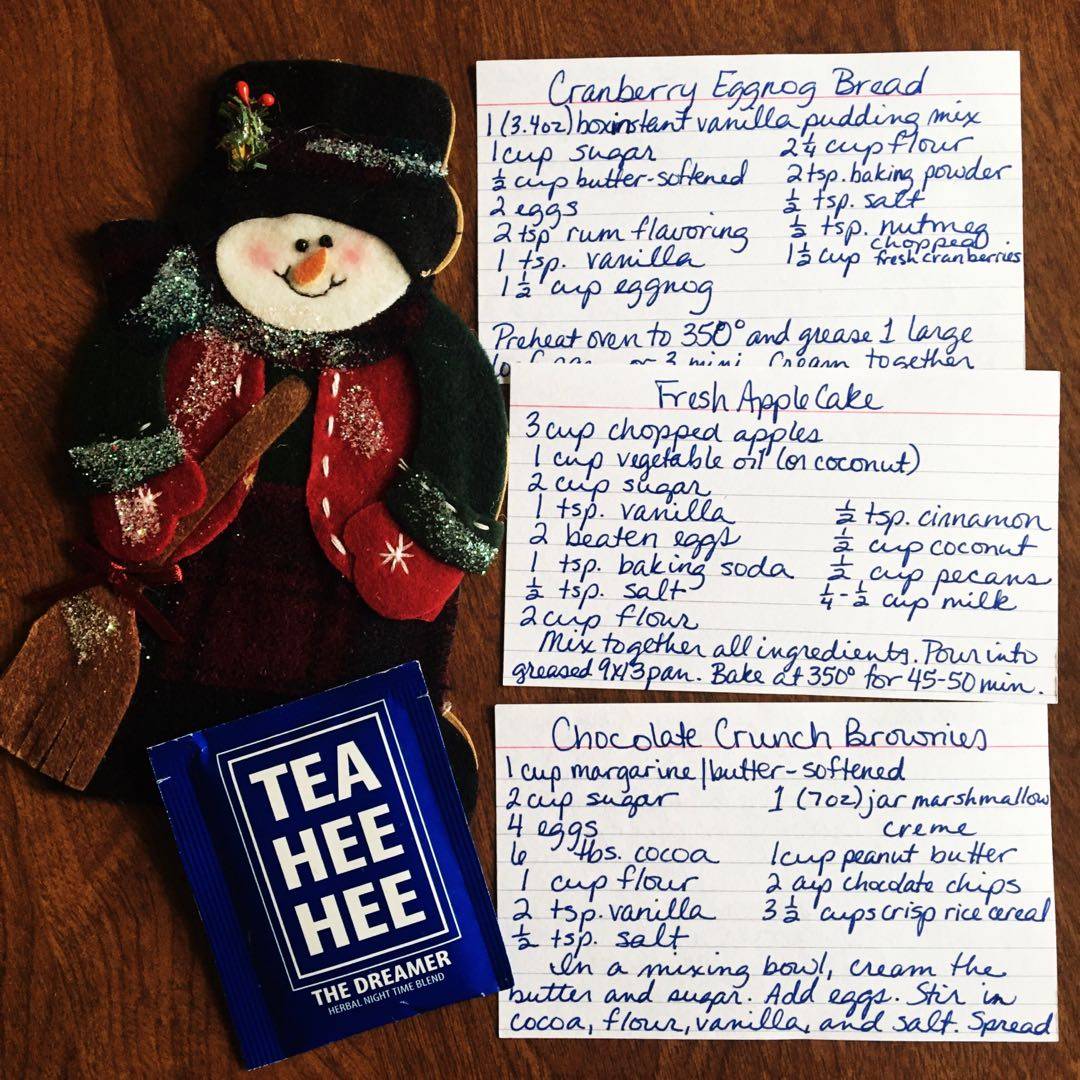 Cranberry Eggnog Bread
1 (3.4oz) box instant vanilla pudding mix
1 cup sugar
2 1/4 cup flour
1/2 cup butter-softened
2 tsp. baking powder
2 eggs
1/2 tsp. salt
2 tsp rum flavoring
1/2 tsp. nutmeg
1 tsp. vanilla
1 1/2 cup chopped fresh cranberries
1 1/2 cup eggnog
Preheat oven to 350° and grease 1 large
or 3 mini. Cream together
Fresh Apple Cake
3 cup chopped apples
1 cup vegetable oil (or coconut)
2 cup sugar
1 tsp. vanilla
1/2 tsp. cinnamon
2 beaten eggs
1/2 cup coconut
1 tsp. baking soda
1/2 cup pecans
1/2 tsp. salt
1/4-1/2 cup milk
2 cup flour
Mix together all ingredients. Pour into
greased 9x13 pan. Bake at 350° for 45-50 min.
Chocolate Crunch Brownies
1 cup margarine/butter-softened
2 cup sugar
1 (7oz) jar marshmallow
creme
4 eggs
6 tbs. cocoa
1 cup peanut butter
1 cup flour
2 cup chocolate chips
2 tsp. vanilla
3 1/2 cups crisp rice cereal
1/2 tsp. salt
In a mixing bowl, cream the
butter and sugar. Add eggs. Stir in
cocoa, flour, vanilla, and salt. Spread
TEA
HEE
HEE
THE DREAMER
HERBAL NIGHT TIME BLEND